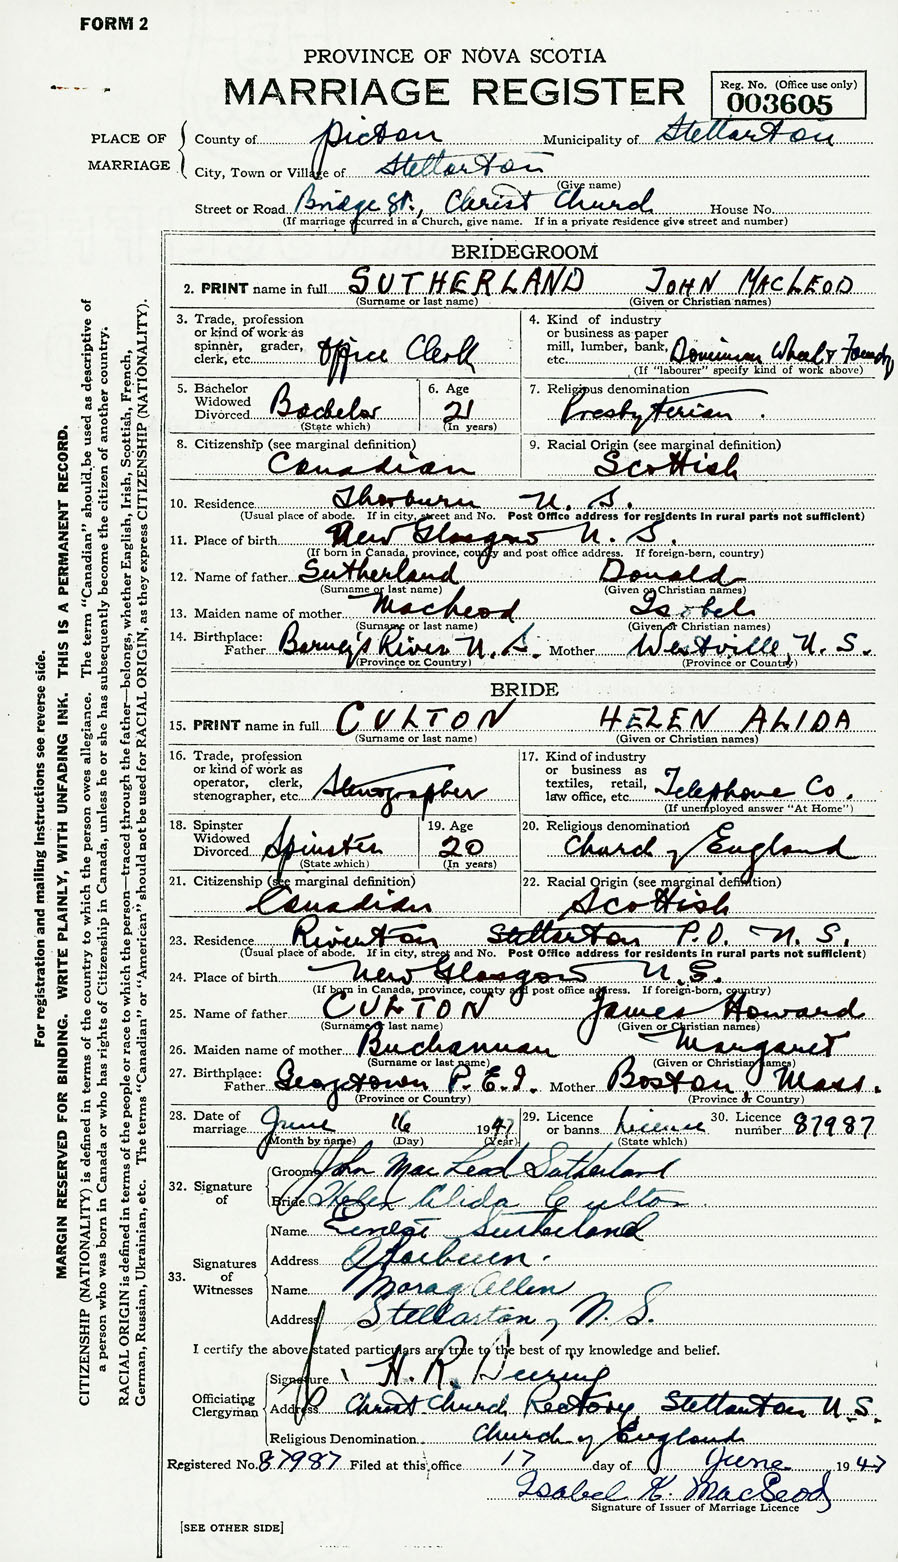 FORM 2
PROVINCE OF NOVA SCOTIA
MARRIAGE REGISTER
Reg. No. (Office use only)
003605
PLACE OF MARRIAGE
County of Picton Municipality of Stellarton
City, Town or Village of Stellarton
(Give name)
Street or Road Bridge St., Christ Church House No.
(If marriage occurred in a Church, give name. If in a private residence give street and number)
BRIDEGROOM
2. PRINT name in full SUTHERLAND JOHN MACLEOD
(Surname or last name) (Given or Christian names)
3. Trade, profession or kind of work as spinner, grader, clerk, etc. Office Clerk
4. Kind of industry or business as paper mill, lumber, bank, etc. Dominion Wheel & Foundry
(If "labourer" specify kind of work above)
5. Bachelor Widowed Divorced Bachelor
(State which)
6. Age 21
(In years)
7. Religious denomination Presbyterian.
8. Citizenship (see marginal definition) Canadian
9. Racial Origin (see marginal definition) Scottish
10. Residence Thorburn N. S.
(Usual place of abode. If in city, street and No. Post Office address for residents in rural parts not sufficient)
11. Place of birth New Glasgow N. S.
(If born in Canada, province, county and post office address. If foreign-born, country)
12. Name of father Sutherland Donald
(Surname or last name) (Given or Christian names)
13. Maiden name of mother MacLeod Isobel
(Surname or last name) (Given or Christian names)
14. Birthplace: Father Barney's River N. S. Mother Westville, N. S.
(Province or Country) (Province or Country)
BRIDE
15. PRINT name in full CULTON HELEN ALIDA
(Surname or last name) (Given or Christian names)
16. Trade, profession or kind of work as operator, clerk, stenographer, etc. Stenographer
17. Kind of industry or business as textiles, retail, law office, etc. Telephone Co.
(If unemployed answer "At Home")
18. Spinster Widowed Divorced Spinster
(State which)
19. Age 20
(In years)
20. Religious denomination Church of England
21. Citizenship (see marginal definition) Canadian
22. Racial Origin (see marginal definition) Scottish
23. Residence Riverton Stellarton P.O. N. S.
(Usual place of abode. If in city, street and No. Post Office address for residents in rural parts not sufficient)
24. Place of birth New Glasgow N. S.
(If born in Canada, province, county and post office address. If foreign-born, country)
25. Name of father CULTON James Howard
(Surname or last name) (Given or Christian names)
26. Maiden name of mother Buchannan Margaret
(Surname or last name) (Given or Christian names)
27. Birthplace: Father Georgetown P.E.I. Mother Boston Mass.
(Province or Country) (Province or Country)
28. Date of marriage June 16 1947
(Month by name) (Day) (Year)
29. Licence or banns Licence
(State which)
30. Licence number 87987
32. Signature of
Groom John MacLeod Sutherland
Bride Helen Alida Culton
33. Signatures of Witnesses
Name Ernest Sutherland
Address Thorburn.
Name Morag Allen
Address Stellarton, N. S.
I certify the above stated particulars are true to the best of my knowledge and belief.
Officiating Clergyman
Signature H. R. Deering
Address Christ Church Rectory Stellarton N.S.
Religious Denomination Church of England
Registered No. 87987 Filed at this office 17 day of June 1947
Isabel K. MacLeod
Signature of Issuer of Marriage Licence
[SEE OTHER SIDE]
For registration and mailing instructions see reverse side.
MARGIN RESERVED FOR BINDING. WRITE PLAINLY, WITH UNFADING INK. THIS IS A PERMANENT RECORD.
CITIZENSHIP (NATIONALITY) is defined in terms of the country to which the person owes allegiance. The term "Canadian" should be used as descriptive of
a person who was born in Canada or who has rights of Citizenship in Canada, unless he or she has subsequently become the citizen of another country.
RACIAL ORIGIN is defined in terms of the people or race to which the person—traced through the father—belongs, whether English, Irish, Scottish, French,
German, Russian, Ukrainian, etc. The terms "Canadian" or "American" should not be used for RACIAL ORIGIN, as they express CITIZENSHIP (NATIONALITY).